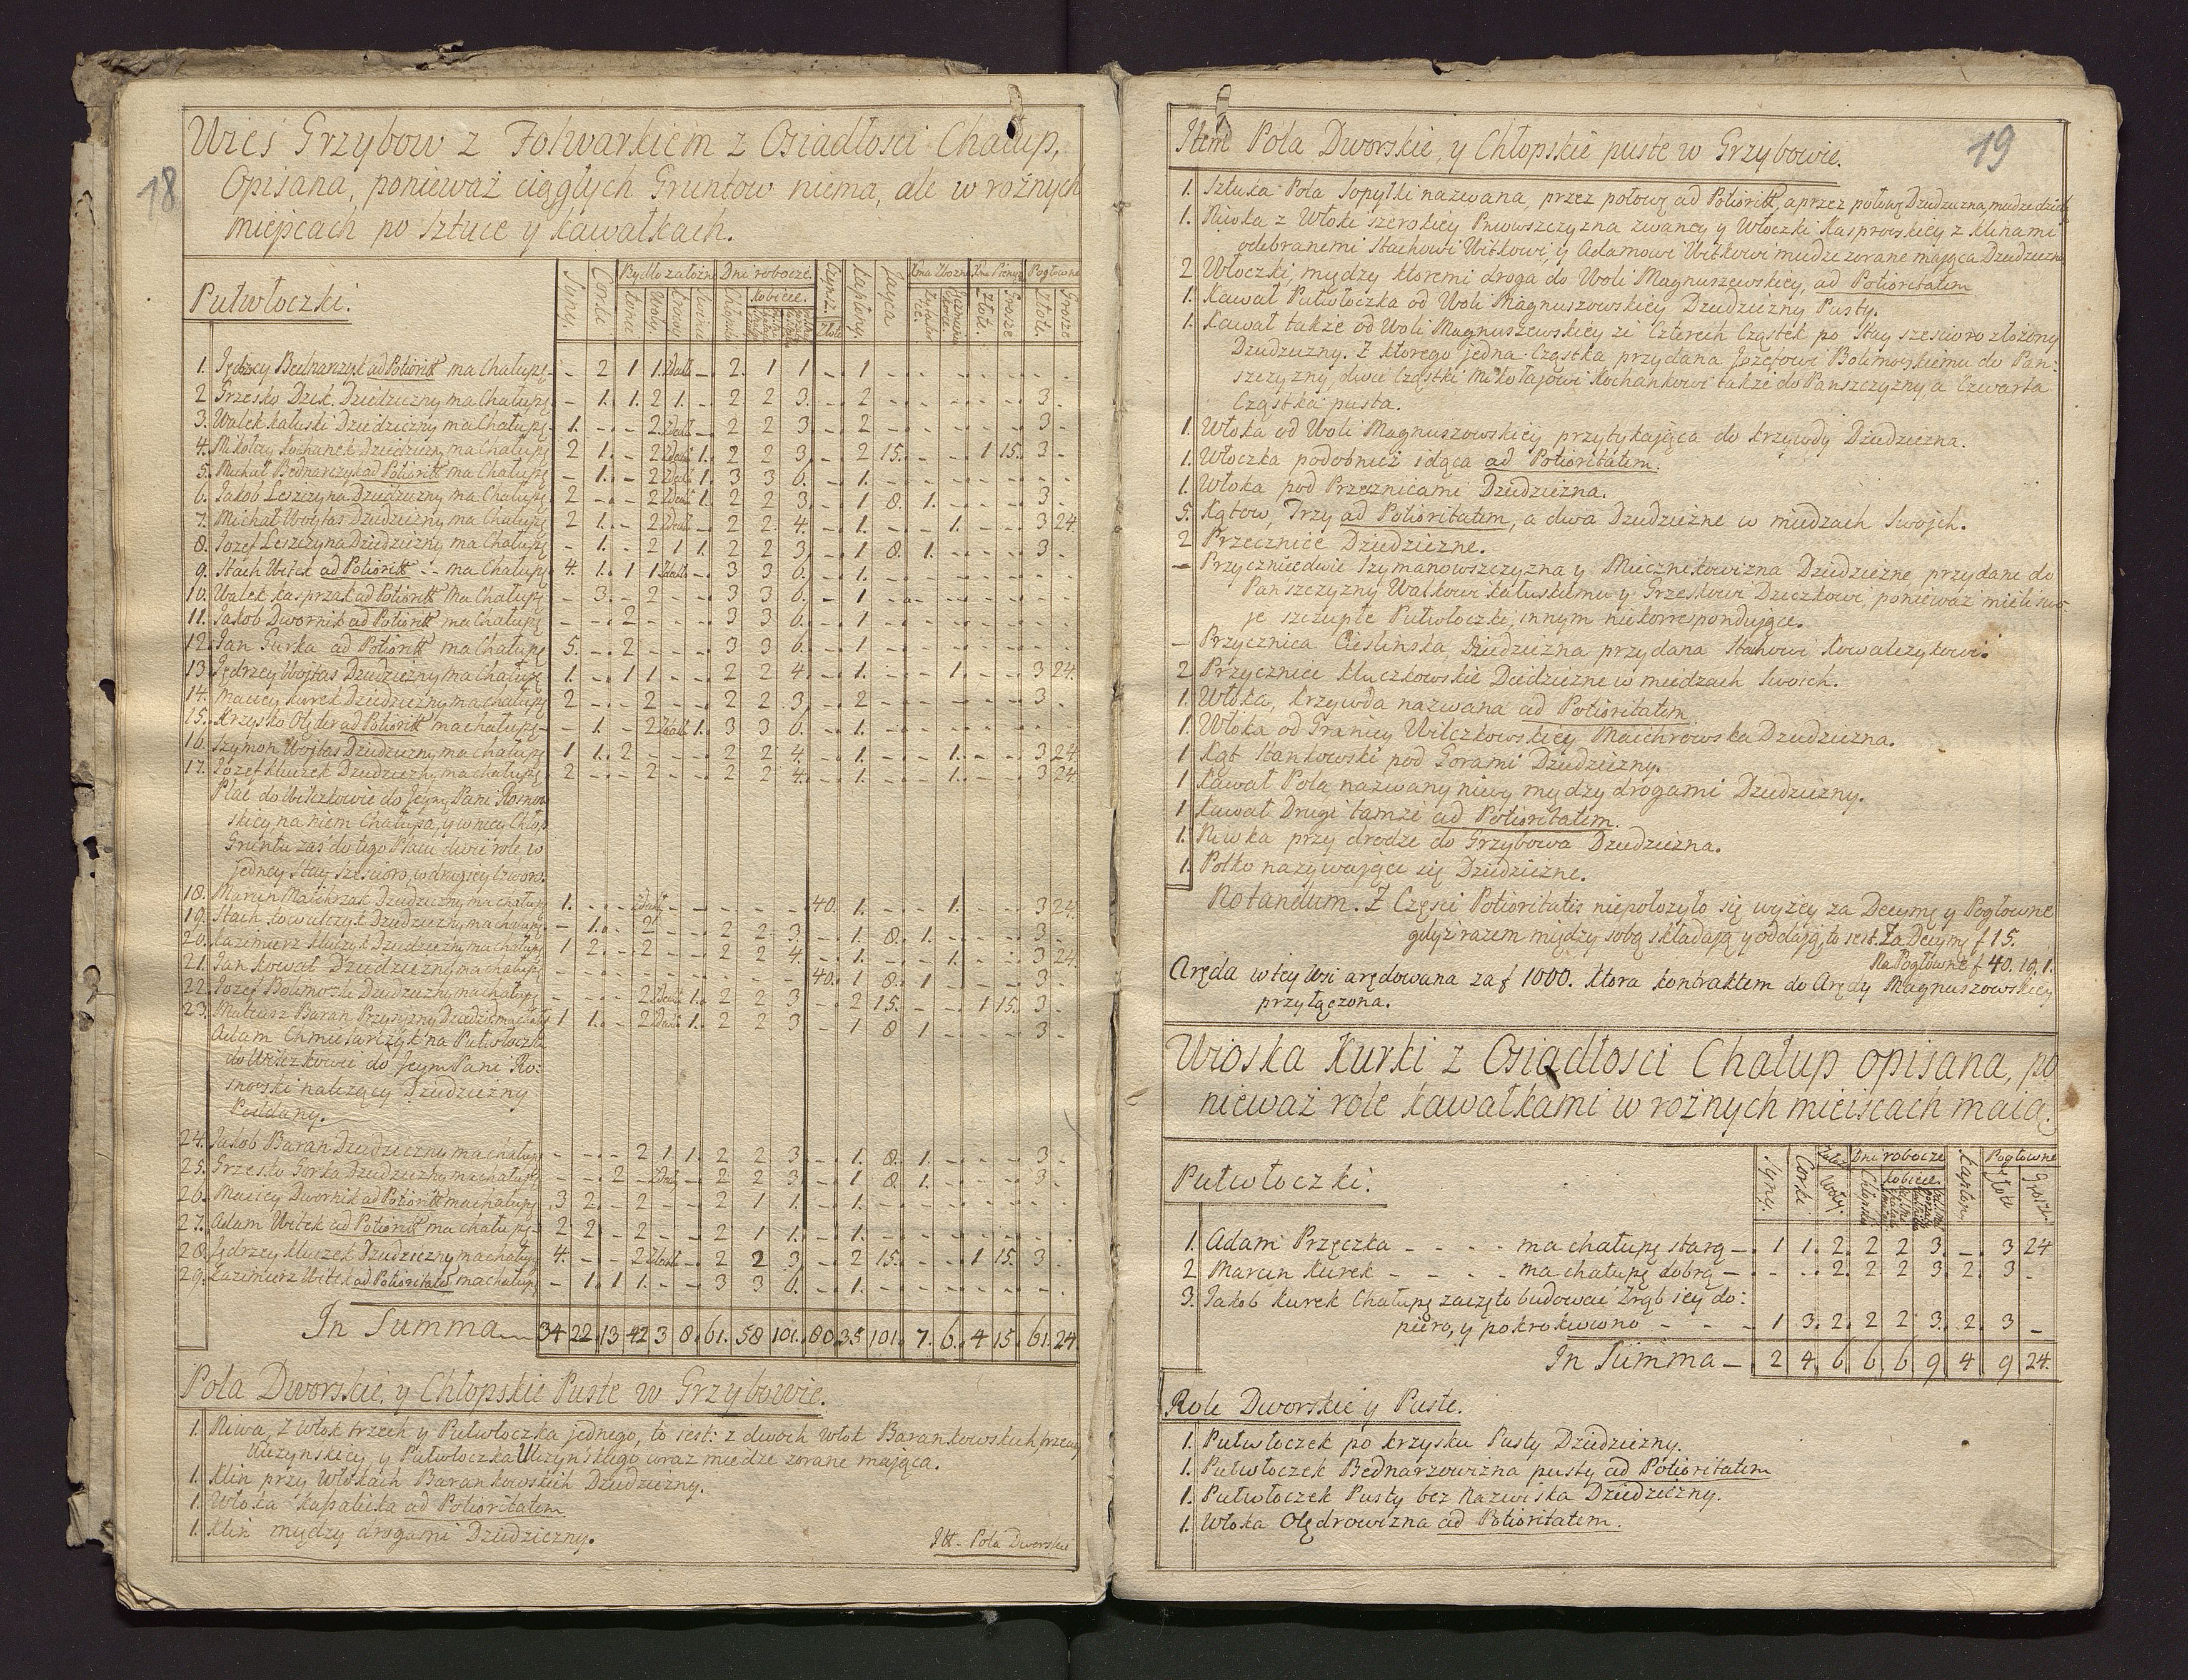 18
Wieś Grzybow z Folwarkiem z Osiadłosci Chałup,
Opisana, ponieważ ciągłych Gruntow niema, ale w rożnych
miejscach po sztuce y kawałkach.
Pułwłoczki.
Synow. Corki Bydło założne Dni robocze. Czynsz. Kapłony. Jayca Pogłowne
Konie Woły. Krowy Chłopskie Kobiece. Złote Złote. Grosze Złote. Grosze
1. Jędrzey Bednarczyk ad Potioritt ma Chałupę - - 2 1 1. 2. 1 1 - 1
2 Grzesko Dzik Dziedziczny ma Chałupę - 1. 1. 2 1. - 2 2 3. - 2 3 -
3. Walek Kałuski Dziedziczny ma Chałupę. 1. - - 2. - 2 2 3 - 2 3 -
4. Mikołay Kochanek Dziedziczny ma Chałupę 2 1. - 2 1. 2 2 3 - 2 15. 1 15. 3 -
5. Michał Bednarczyk ad Potioritt ma Chałupę - 1. - 2 1. 3 3 6. - 1.
6. Jakob Leszczyna Dziedziczny ma Chałupę 2 - - 2 1. 2 2 3. - 1 8. 1. 3 -
7. Michał Woytas Dziedziczny ma Chałupę 2 1. - 2 - 2 2 4. - 1. 1. 3 24.
8. Jozef Leszczyna Dziedziczny ma Chałupę - 1. - 2 1 1. 2 2 3 - 1 8. 1. 3 -
9. Stach Witek ad Potioritt - - ma Chałupę 4. 1. 1 1. - 3 3 6. - 1.
10. Walek Kasprzak ad Potioritt Ma Chałupę - 3. - 2 - - 3 3 6. - 1
11. Jakob Dwornik ad Potioritt ma Chałupę - - - 2 - - 3 3 6. - 1
12. Jan Gurka ad Potioritt ma Chałupę 5. - - 2 - - 3 3 6. - 1
13. Jędrzey Woytas Dziedziczny ma Chałupę 1. - 1 1. - - 2 2 4. - 1. 1. 3 24.
14. Maciey Kurek Dziedziczny ma chałupę 2 - - 2 - - 2 2 3 - 2 3 -
15. Krzysko Olęder ad Potioritt ma chałupę - 1. - 2 1. 3 3 6. - 1.
16. Szymon Woytas Dziedziczny ma chałupę 1 1. 2 - - - 2 2 4. - 1. 1. 3 24
17. Jozef Kluczek Dziedziczny ma chałupę 2 - - 2 - - 2 2 4. - 1. 1. 3 24.
Plac do Wilczkowic do Jeyms Pani Rosnow
skiey, na niem Chałupa, y w niey Chłop
Gruntu zas do tego Placu dwie role, w
jedney Stay szescioro, w drugiey czworo.
18. Marcin Maichrzak Dziedziczny ma chałupę 1. 40. 1. 1. 3 24.
19. Stach Kowalczyk Dziedziczny ma chałupę - 1. - 2 - - 2 2 3 - 1. 8. 1. 3 -
20. Kazimierz Kluczyk Dziedziczny ma chałupę 1 2. - 2 - - 2 2 4. - 1. 1. 3 24.
21. Jan Kowal Dziedziczny ma chałupę 40. 1 8. 1 3 -
22. Jozef Bolimoski Dziedziczny ma chałupę - - - 2 1. 2 2 3 - 2 15. 1 15. 3 -
23. Mateusz Baran Dziedziczny 1 1. - 2 1. 2 2 3 - 1 8 1. 3 -
Adam Chmielarczyk na Pułwłoczku
do Wilczkowic do Jeym Pani Ro:
snowski należący Dziedziczny
Poddany.
24. Jakob Baran Dziedziczny ma chałupę - - - 2 1 1. 2 2 3. - 1. 8. 1. 3 -
25. Grzesko Gorka Dziedziczny ma chałupę - - 2 - - 2 2 3. - 1 8 1. 3 -
26. Maciey Dwornik ad Potioritt ma chałupę 3 2. - 2 - - 2 1 1. - 1.
27. Adam Witek ad Potioritt ma chałupę - 2 2. - 2 - - 2 1 1. - 1.
28. Jędrzey Kluczek Dziedziczny ma chałupę 4. - - 2 - 2 2 3 - 2 15. 1 15. 3 -
29. Kazimierz Witek ad Potioritatem ma chałupę - 1. 1 1. - - 3 3 6. - 1.
In Summa 34 22. 13 42 3 8. 61. 58 101. 80. 35 101. 7. 6. 4 15. 61. 24.
Pola Dworskie, y Chłopskie Puste w Grzybowie.
1. Niwa, z Włok trzech y Pułwłoczka jednego, to iest: z dwoch Włok Barankowskich,
y Pułwłoczka Uczynskiego wraz miedze zorane mająca.
1. Klin przy Włokach Barankowskich Dziedziczny.
1. Włoka Kapalicka ad Potioritatem
1. Klin między drogami Dziedziczny.
Itt. Pola Dworskie
19
Item Pola Dworskie, y Chłopskie puste w Grzybowie.
1. Sztuka Pola Sopyłki nazwana, przez połowę ad Potioritt, a przez połowę Dziedziczna, miedze
1. Niwka z Włoki szerokiey zwaney y Włoczki Kasprowskiey z klinami
odebranemi Stachowi Witkowi, y Adamowi Witkowi miedze zorane mająca Dziedziczna
2 Włoczki, między ktoremi droga do Woli Magnuszewskiey, ad Potioritatem
1. Kawał Pułwłoczka od Woli Magnuszowskiey Dziedziczny Pusty.
1. Kawał także od Woli Magnuszewskiey ze Czterech Cząstek po Stay szescioro złożony
Dziedziczny. Z ktorego jedna Cząstka przydana Jozefowi Bolimoskiemu do Pan:
szczyzny, dwie Cząstki Mikołajowi Kochankowi także do Panszczyzny, a Czwarta
Cząstka pusta.
1. Włoka od Woli Magnuszowskiey przytykająca do Krzywdy Dziedziczna.
1. Włoczka podobnież idąca ad Potioritatem.
1. Włoka pod Przecznicami Dziedziczna.
5. Kątow, Trzy ad Potioritatem, a dwa Dziedziczne w miedzach swojch.
2 Przecznice Dziedziczne.
- Przycznice dwie Szymanowszczyzna y Miecznikowizna Dziedziczne przydane do
Panszczyzny Walkowi Kałuskiemu y Grzeskowi Dzieczkowi, ponieważ mieli swo
je szczupłe Pułwłoczki, innym niekorrespondujące.
- Przycznica Cieslinska, Dziedziczna przydana Stachowi Kowalczykowi.
2 Przycznice Kluczkowskie Dziedziczne w miedzach swoich.
1. Włoka, Krzywda nazwana ad Potioritatem
1. Włoka od Granicy Wilczkowskiey Maichrowska Dziedziczna.
1 Kąt Stankowski pod Gorami Dziedziczny.
1 Kawał Pola nazwany niwy między drogami Dziedziczny.
1 Kawał Drugi tamże ad Potioritatem.
1. Niwka przy drodze do Grzybowa Dziedziczna.
1. Polko nazywające się Dziedziczne.
Notandum. Z Częsci Potioritatis niepołożyło się wyżey za Decymę y Pogłowne
gdyż razem między sobą składają y oddają, to iest. Za Decymę f 15.
Na Pogłowne f 40. 19. 1.
Aręda w tey Wsi arędowana za f 1000. ktora kontraktem do Arędy Magnuszowskiey
przyłączona.
Wioska Kurki z Osiadłosci Chałup opisana, po
nieważ role kawałkami w rożnych mieiscach maią.
Pułwłoczki.
Synow. Corki. Woły. Dni robocze Kapłony Pogłowne
Chłopskie Kobiece. Złote Grosze
1. Adam Przęczka - - - - ma chałupę starą - 1 1. 2. 2 2 3 - 3 24
2 Marcin Kurek - - - - ma chałupę dobrą - - - 2. 2 2 3. 2. 3 -
3. Jakob Kurek Chałupę zaczęto budować Zrąb iey do:
piero, y pokrokwiono - - - 1 3. 2. 2 2 3. 2. 3 -
In Summa - 2 4. 6. 6. 6. 9. 4. 9 24.
Role Dworskie y Puste.
1. Pułwłoczek po Krzysku Pusty Dziedziczny.
1. Pułwłoczek Bednarzowizna pusty ad Potioritatem
1. Pułwłoczek Pusty bez Nazwiska Dziedziczny.
1. Włoka Olędrowizna ad Potioritatem.